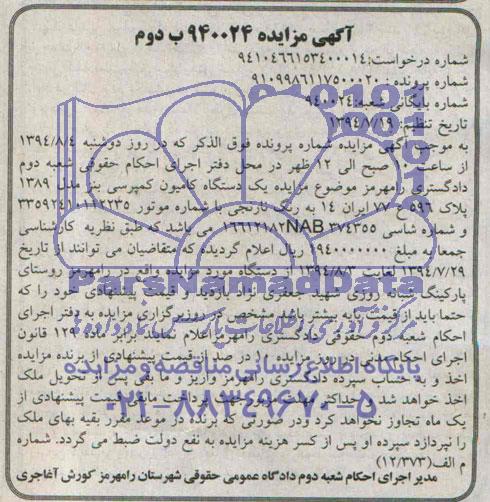 آگهی مزایده ۹۴۰۰۲۴ ب دوم
شماره درخواست: ۹۴۱۰۴۶۶۱۵۳۴۰۰۰۱۴
شماره پرونده: ۹۱۰۹۹۸۶۱۱۷۵۰۰۰۲۰
شماره بایگانی شعبه: ۹۴۰۰۲۴
تاریخ تنظیم: ۱۳۹۴/۷/۱۹
به موجب آگهی مزایده شماره پرونده فوق الذکر که در روز دوشنبه ۱۳۹۴/۸/۴
از ساعت ۱۰ صبح الی ۱۲ ظهر در محل دفتر اجرای احکام حقوقی شعبه دوم
دادگستری رامهرمز موضوع مزایده یک دستگاه کامیون کمپرسی بنز مدل ۱۳۸۹
پلاک ۵۹۶ ع ۷۷ ایران ۱۴ به رنگ نارنجی با شماره موتور ۳۳۵۹۲۴۱۰۱۱۲۲۳۵
و شماره شاسی ۱۶۶۱۲۱۸۲NAB ۳۷۴۳۵۵ می باشد که طبق نظریه کارشناسی
جمعا به مبلغ ۱۹۴۰۰۰۰۰۰۰ ریال اعلام گردیده که متقاضیان می توانند از تاریخ
۱۳۹۴/۷/۲۹ لغایت ۱۳۹۴/۸/۳ از دستگاه مورد مزایده واقع در رامهرمز روستای
پارکینگ شبانه روزی شهید جعفری نژاد بازدید و قیمت پیشنهادی خود را که
حتما باید از قیمت پایه بیشتر باشد مشخص در روز برگزاری مزایده به دفتر اجرای
احکام شعبه دوم حقوقی دادگستری رامهرمز اعلام نمایند برابر ماده ۱۲۹ قانون
اجرای احکام مدنی در روز مزایده ۱۰ در صد از قیمت پیشنهادی از برنده مزایده
اخذ و به حساب سپرده دادگستری رامهرمز واریز و ما بقی پس از تحویل ملک
اخذ خواهد شد و حداکثر مهلت پرداخت مابقی قیمت پیشنهادی از
یک ماه تجاوز نخواهد کرد و در صورتی که برنده در موعد مقرر بقیه بهای ملک
را نپردازد سپرده او پس از کسر هزینه مزایده به نفع دولت ضبط می گردد. شماره
م الف(۱۲/۳۷۳)
مدیر اجرای احکام شعبه دوم دادگاه عمومی حقوقی شهرستان رامهرمز کورش آغاجری
ParsNamadData
مرکز فرآوری اطلاعات پارس نماد داده ها
پایگاه اطلاع رسانی مناقصه و مزایده
۰۲۱-۸۸۳۴۹۶۷۰-۵